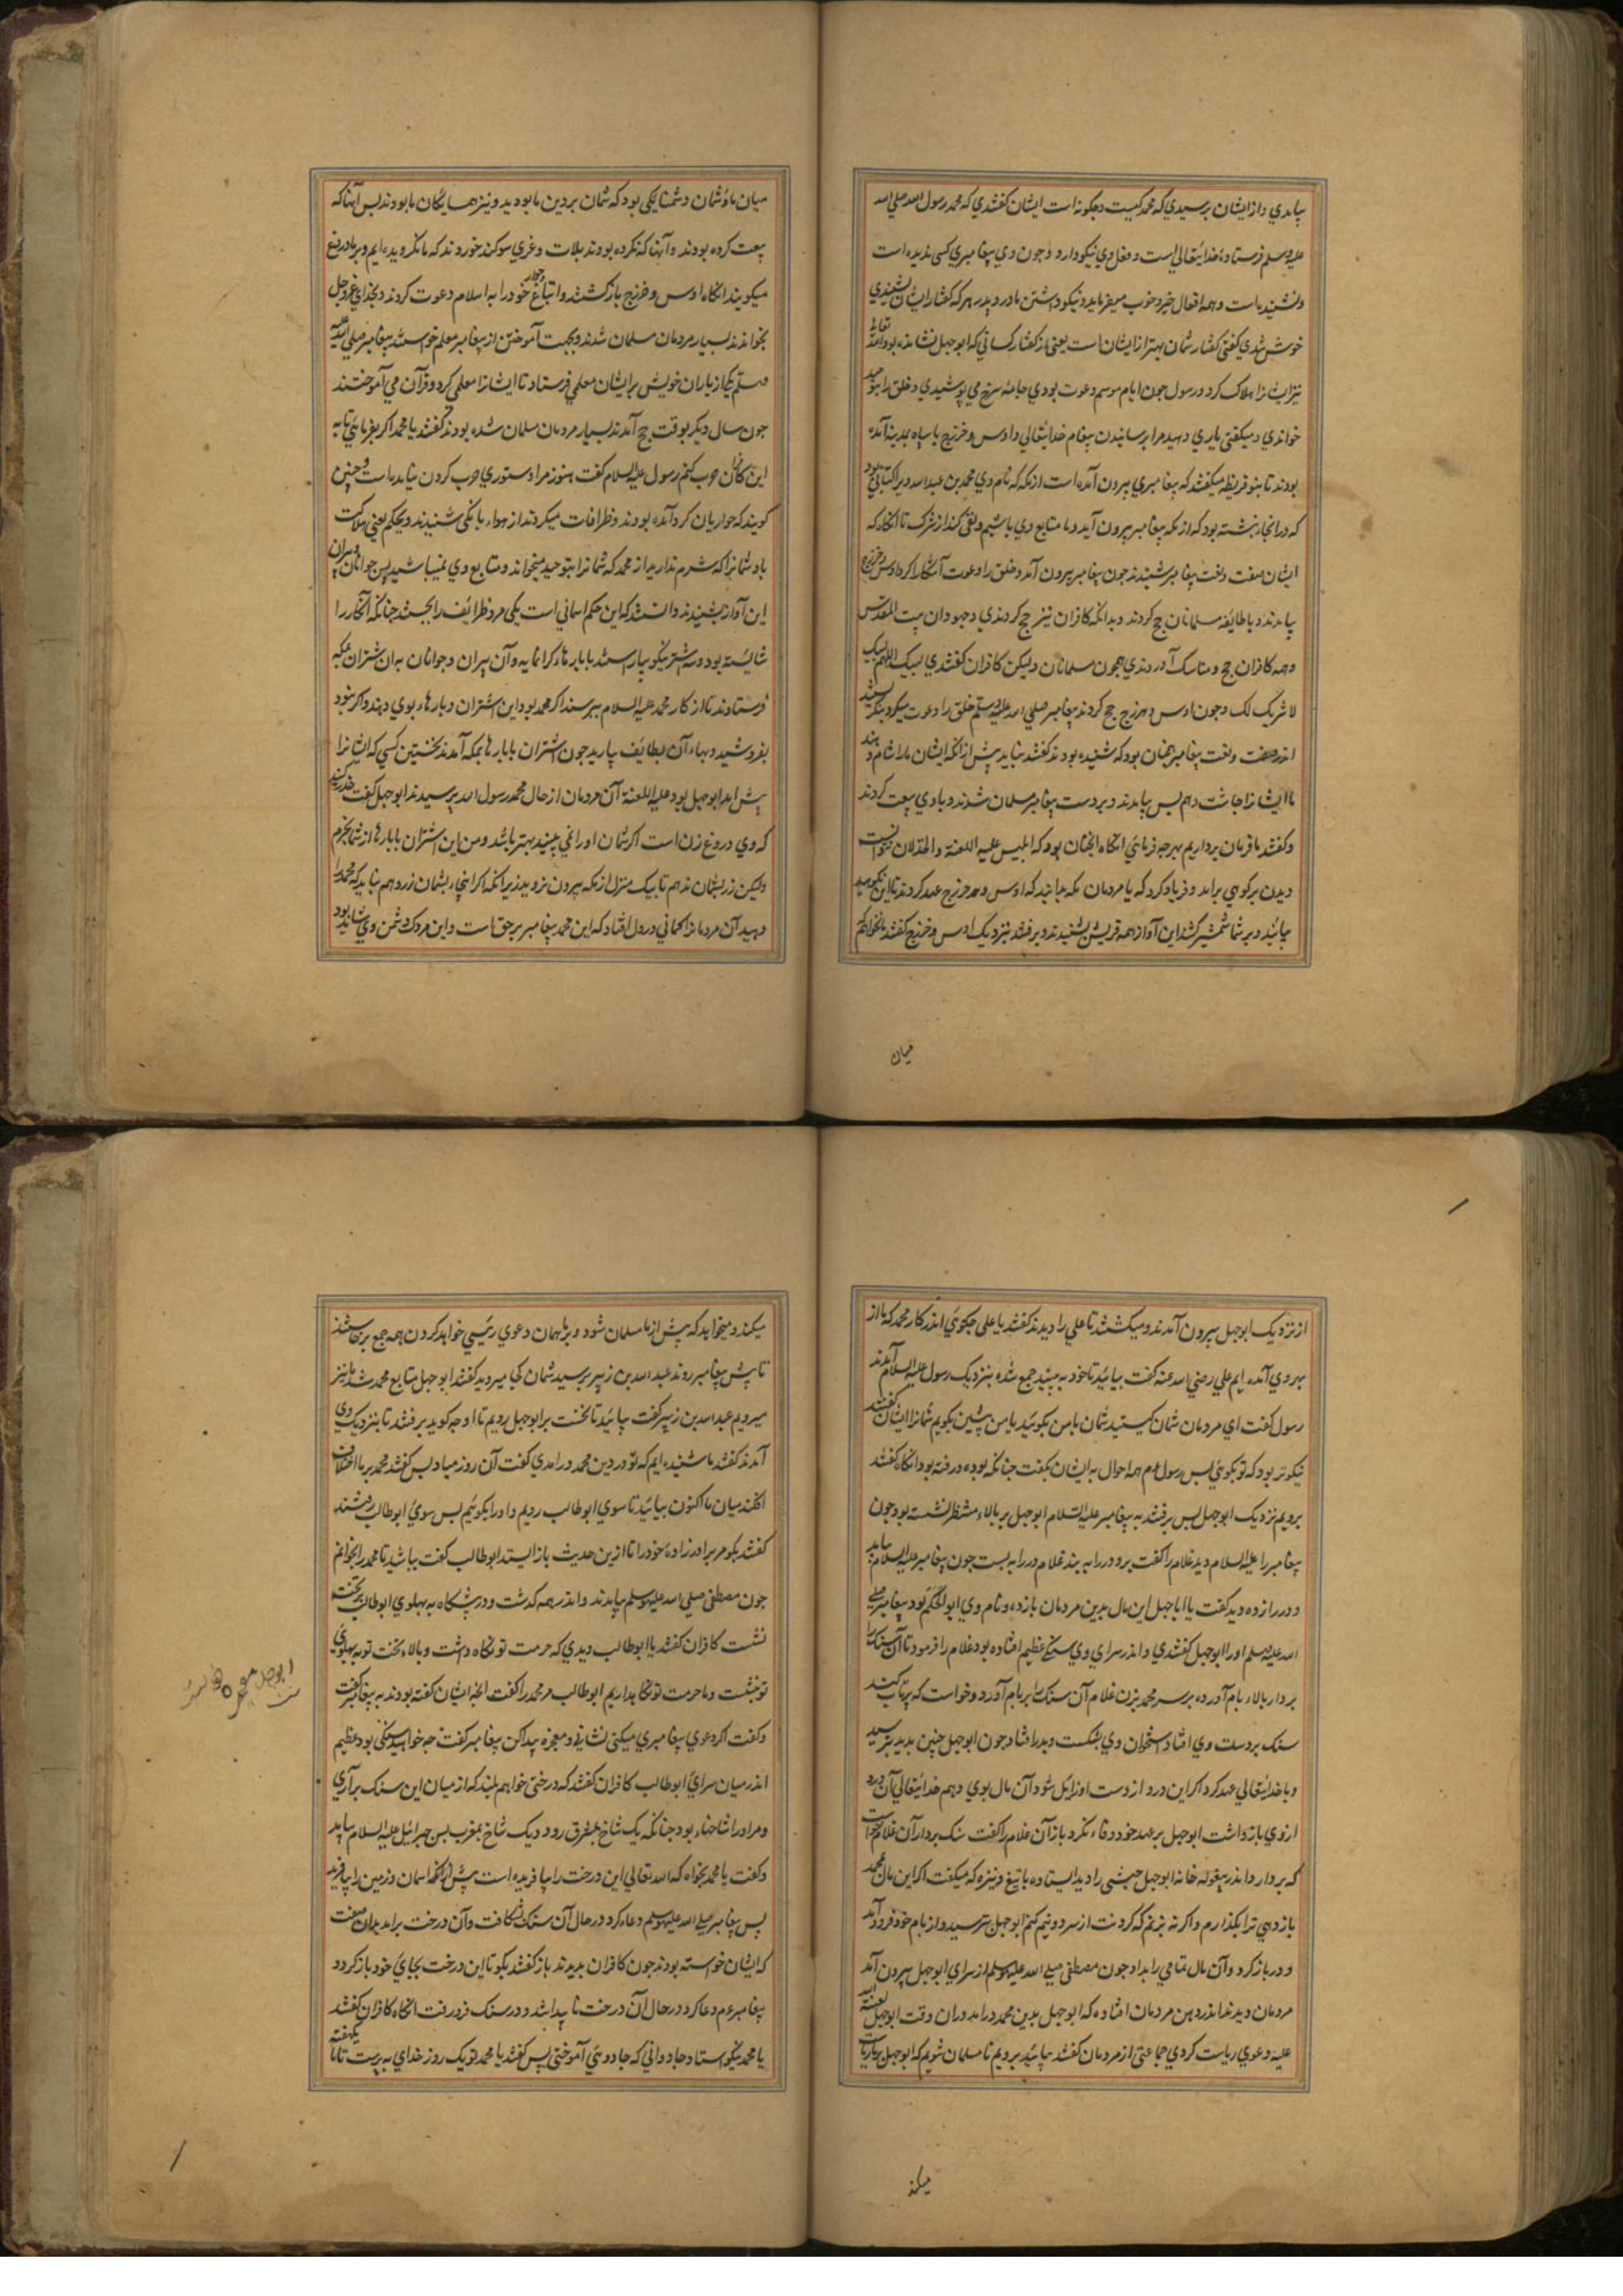 بیامدی و از ایشان پرسیدی که محمد کیست و چگونه است ایشان گفتندی که محمد رسول الله صلی الله
علیه وسلم فرستاده خدایتعالیست و فعل وی نیکو دارد و چون وی پیغامبری کسی ندیده است
ونشنیده است و همه افعال خیر و خوب میفرماید و نیکو داشتن مادر و پدر هر که گفتار ایشان بشنیدی
خوش شدی گفتی گفتار شمان بهتر از ایشان است یعنی از گفتار کسانی که ابوجهل نشانده بود و الله تعالی
نیز ایشانرا هلاک کرد و رسول چون ایام موسم دعوت بودی جامه سرخ می پوشیدی و خلق را بتوحید
خواندی و میگفتی یاری دهید مرا برسانیدن پیغام خدایتعالی و اوس و خزرج با سپاه بمدینه آمده
بودند تا بنو قریظه میگفتند که پیغامبری بیرون آمده است از مکه که نام وی محمد بن عبدالله و در کتابی بود
که در انجا نبشته بود که از مکه پیغامبر بیرون آید و ما متابع وی باشیم و نفی کند از شرک تا انگاه که
ایشان صفت و نعت پیغامبر شنیدند چون پیغامبر بیرون آمد و خلق را دعوت آشکارا کرد اوس و خزرج
بیامدند و با طائفه مسلمانان حج کردند و بدانکه کافران نیز حج کردندی و جهودان بیت المقدس
و همه کافران حج و مناسک آوردندی همچون مسلمانان ولیکن کافران گفتندی لبیک اللهم لبیک
لا شریک لک و چون اوس و خزرج حج کردند پیغامبر صلی الله علیه وسلم خلق را دعوت میکرد بنگریستند
اندر صفت و نعت پیغامبر همچنان بود که شنیده بودند گفتند بیاید پیش از آنکه ایشان ما را شام دهند
ما ایشانرا چاشت دهیم پس بیامدند و بر دست پیغامبر مسلمان شدند و با وی بیعت کردند
و گفتند ما فرمان برداریم بهر چه فرمائی انگاه انچنان بود که ابلیس علیه اللعنة والخذلان نتوانست
دیدن بر کوهی برامد و فریاد کرد که یا مردمان مکه بدانید که اوس و همه خزرج عهد کردند تا این نکوهید
بیائید و بر شما شمشیر کشد این آواز همه قریش بشنیدند و برفتند بنزدیک اوس و خزرج گفتند ما نخواهیم که
میان
میان ما و شمان دشمنایگی بود که شمان بر دین ما بودید و نیز همسایگان ما بودند پس آنها که
بیعت کرده بودند و آنها که نکرده بودند بلات و عزی سوگند خوردند که ما نگرویده ایم و بر ما دروغ
میگویند انگاه اوس و خزرج باز گشتند و اتباع خود را به اسلام دعوت کردند و بخدای عزوجل
بخواندند بسیار مردمان مسلمان شدند و بجهت آموختن از پیغامبر معلم خواستند پیغامبر صلی الله علیه
وسلم یکی از یاران خویش بر ایشان معلمی فرستاد تا ایشانرا معلمی کرد و قرآن می آموختند
چون سال دیگر بوقت حج آمدند بسیار مردمان مسلمان شده بودند گفتند یا محمد اگر بفرمائی تا به
این کافران حرب کنیم رسول علیه السلام گفت هنوز مرا دستوری حرب کردن نیامده است و چنین
گویند که حواریان گرد آمده بودند و ظرافات میکردند از هوا بانگی شنیدند و بحکم یعنی هلاکت
باد شمانرا که شرم ندارید از محمد که شمانرا بتوحید میخواند و متابع وی نمیباشید پس جوانان و پیران
این آواز بشنیدند و دانستند که این حکم آسمانی است یکی مرد ظرایف را بجستند چنانکه آنکار را
شایسته بود و سه اشتر نیکو بیاراستند با بارهاء گرانمایه و آن پیران و جوانان به ان شتران بمکه
فرستادند تا از کار محمد علیه السلام بپرسند اگر محمد بود این اشتران و بارهاء بوی دهند و اگر نبود
بفروشید و بهاء آن بطایف بیارید چون اشتران با بارها بمکه آمدند نخستین کسی که ایشانرا
پیش امد ابوجهل بود علیه اللعنة آن مردمان از حال محمد رسول الله پرسیدند ابوجهل گفت حذر کنید
که وی دروغ زن است اگر شمان او را نمی بینید بهتر باشد و من این اشتران با بارها از شما بخرم
ولیکن زر بشمان ندهم تا بیک منزل از مکه بیرون نروید زیرا نکه اگر اینجا بشمان زر دهم نباید که محمد را
دهید آن مردمانرا گمانی در دل افتاد که این محمد پیغامبر بر حق است و این مردک دشمن وی شاید بود
از نزدیک ابوجهل بیرون آمدند و میگشتند تا علی را دیدند گفتند یا علی چگوئی اندر کار محمد که ما از
بهر وی آمده ایم علی رضی الله عنه گفت بیائید تا خود به بینید جمع شده بنزدیک رسول علیه السلام آمدند
رسول گفت ای مردمان شمان کیستید شمان با من بگوئید یا من پیشین بگویم شمانرا ایشان گفتند
نیکوتر بود که تو بگوئی پس رسول عم همه احوال به ایشان بگفت چنانکه بوده و رفته بود انگاه گفتند
برویم نزدیک ابوجهل پس برفتند به پیغامبر علیه السلام ابوجهل بر بالاء منتظر نشسته بود چون
پیغامبر را علیه السلام دید غلام را گفت برو در را به بند غلام در را به بست چون پیغامبر علیه السلام بیامد
و در را زده دید گفت یا ابا جهل این مال بدین مردمان باز ده و نام وی ابو الحکم بود پیغامبر صلی
الله علیه وسلم او را ابوجهل گفتندی و اندر سرای وی سنگی عظیم افتاده بود غلام را فرمود تا آن سنگ را
بردار بالاء بام آورده بر سر محمد بزن غلام آن سنگ را بر بام آورد و خواست که پرتاب کند
سنگ بر دست وی افتاد استخوان وی بشکست و بدر افتاد چون ابوجهل چنین بدید بترسید
و با خدایتعالی عهد کرد اگر این درد از دست او زایل شود آن مال بوی دهم خدایتعالی آن درد
از وی باز داشت ابوجهل بر عهد خود وفا نکرد باز آن غلام را گفت سنگ بردار آن غلام خواست
که بردارد اندر بیغوله خانه ابوجهل حبشی را دید ایستاده با تیغ و نیزه که میگفت اگر این مال محمد
باز دهی ترا بگذارم و اگر نه بزنم که گردنت از سر دو نیم کنم ابوجهل بترسید و از بام خود فرود آمد
و در باز کرد و آن مال تمامی را بداد چون مصطفی صلی الله علیه وسلم از سرای ابوجهل بیرون آمد
مردمان دیدند اندر دهن مردمان افتاده که ابوجهل بدین محمد درامد دران وقت ابوجهل لعنة الله
علیه دعوی ریاست کردی جماعتی از مردمان گفتند بیائید برویم تا مسلمان شویم که ابوجهل بریاریات
میکند
میکند و میخواهد که پیش از ما مسلمان شود و بر ما همان دعوی رئیسی خواهد کردن همه جمع برخاستند
تا پیش پیغامبر روند عبدالله بن زبیر پرسید شمان کجا میروید گفتند ابوجهل متابع محمد شد ما نیز
میرویم عبدالله بن زبیر گفت بیائید تا نخست بر ابوجهل رویم تا او چه گوید برفتند تا بنزدیک وی
آمدند گفتند ما شنیده ایم که تو در دین محمد درامدی گفت آن روز مباد پس گفتند محمد بر ما اختلاف
افکند میان ما اکنون بیائید تا سوی ابوطالب رویم و او را بگوئیم پس سوی ابوطالب رفتند
گفتند بگو مر برادر زاده خود را تا ازین حدیث باز ایستد ابوطالب گفت بباشید تا محمد را بخوانم
چون مصطفی صلی الله علیه وسلم بیامدند و اندر همه گذشت و در پیشگاه به پهلوی ابوطالب بر تخت
نشست کافران گفتند یا ابوطالب دیدی که حرمت تو نگاه داشت و بالاء تخت تو به پهلوی
تو نشست و ما حرمت تو نگاه داریم ابوطالب مر محمد را گفت انچه ایشان گفته بودند به پیغامبر گفت
و گفت اگر دعوی پیغامبری میکنی نشانی و معجزه پیدا کن پیغامبر گفت چه خواهید سنگی بود عظیم
اندر میان سرای ابوطالب کافران گفتند که درختی خواهیم بلند که از میان این سنگ برآری
و مر او را شاخهاء بود چنانکه یک شاخ بمشرق رود و یک شاخ بمغرب پس جبرائیل علیه السلام بیامد
و گفت یا محمد بخواه که الله تعالی این درخت را بیافریده است پیش از آنکه اسمان و زمین را بیافرید
پس پیغامبر صلی الله علیه وسلم دعاء کرد در حال آن سنگ بشکافت و آن درخت برامد بدان صفت
که ایشان خواسته بودند چون کافران بدیدند باز گفتند بگو تا این درخت بجای خود باز گردد
پیغامبر عم دعا کرد در حال آن درخت نا پیدا شد و در سنگ فرو رفت انگاه کافران گفتند
یا محمد نیکو استاد جادوانی که جادوئی آموختی پس گفتند یا محمد تو یک روز خدای به پرست تا ما یکهفته
ابوجهل